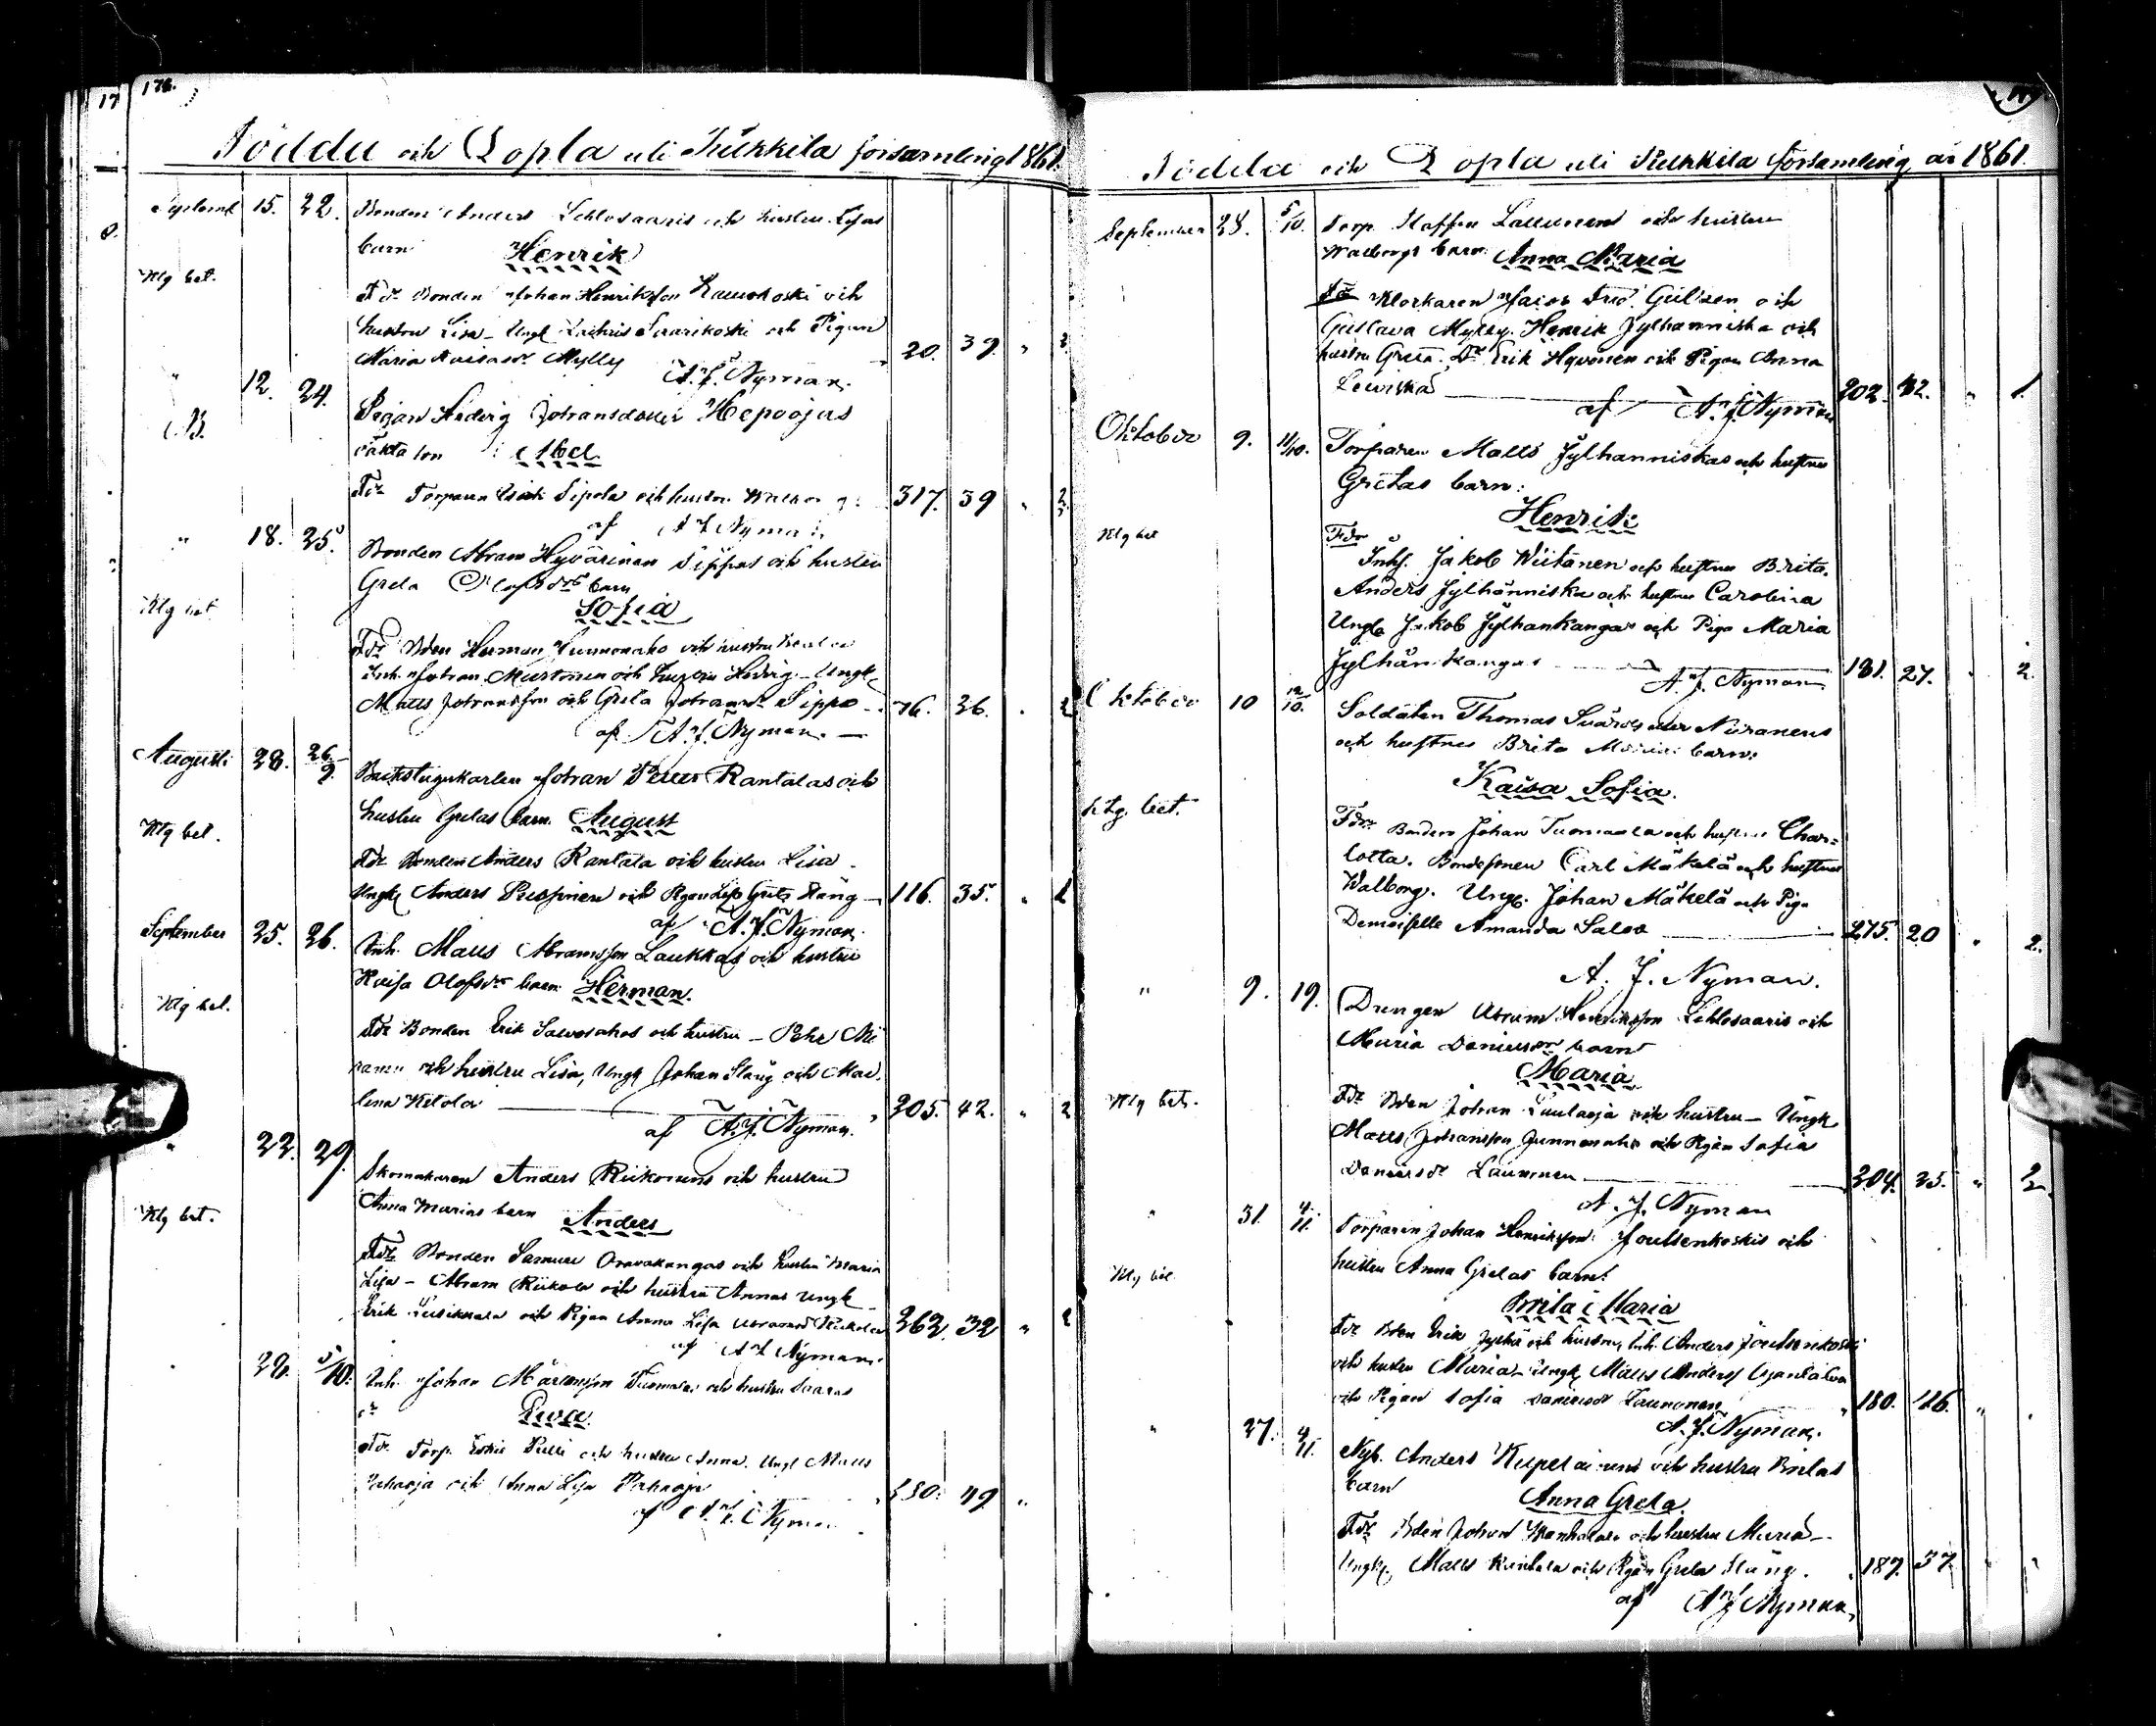 176.
Födda och Döpta uti Pulkkila församling 1861.
Septemb 15. 22. Bonden Anders Lehtosaaris och hustru Lisas
barn Henrik
Klg bet.
Fdr Bonden Johan Henriksson Kauvokoski och
hustru Lisa - Ungk Zachris Saarikoski och Pigan
Maria Kaisadr Mylly 20. 39. "
A. J. Nyman.
" 12. 24. Pigan Hedvig Johansdotter Hepoojas
oäkta son Abel
Fdr Torparen Sipola och hustru 317. 39 "
af A J Nyman
" 18. 25. Bonden Abram Hyvärinen Sippos och hustru
Greta Olofsdrs barn
Sofia
Klg bet
Fdr Bden Herman Junnonaho och hustru
Inh. Johan Mustonen och hustru Hedvig - Ungk
Matts Johansson och Greta Johansdr Sippo 76. 36. "
af A. J. Nyman.
Augusti 28. 26/9. Backstugukarlen Johan Petter Rantalas och
hustru Gretas barn. August
Klg bet.
Fdr Bonden Anders Rantala och hustru Lisa -
Ungk Anders Piispinen och Pgan Lisa Greta Stång 116. 35. "
af A. J. Nyman.
September 25. 26. Inh. Matts Abramsson Laukkas och hustru
Kaisa Olofsdrs barn Herman.
Klg bet.
Fdr Bonden Erik Salvosahos och hustru - Pehr
och hustru Lisa, Ungk Johan Stång och Mag-
lena Ketola 205. 42. " 2
af A. J. Nyman.
" 22. 29. Skomakaren Anders Riikonens och hustru
Anna Marias barn Anders
Klg bet.
Fdr Bonden Samuel Oravakangas och hustru Maria
Lisa - Abram Riikola och hustru Annas Ungk
Erik och Pigan Anna Lisa Abramsd Riikola 262 32 "
af A J Nyman.
28. 5/10. Inh. Johan Mårtensson Tuomalas och hustru Saaras
dr Eva
Fdr Torp. Pulli och hustru Anna. Ungk Matts
Pahaoja och Anna Lisa Pahaoja 49. "
af A. J. Nyman
Födda och Döpta uti Pulkkila församling år 1861.
September 28. 5/10. Torp. Staffan Laurunens och hustru
Walborgs barn Anna Maria
Klockaren Jacob Fred. Gulsen och
Gustava Mylly. Henrik Jylhänniska och
hustru Greta. Dr Erik Hyvönen och Pigan Anna
Leiviska 202. 32. " 1.
af A. J. Nyman
Oktober 9. 11/10. Torparen Matts Jylhänniskas och hustrus
Gretas barn:
Henrik
Klg bet
Fdr
Inhs. Jakob Wiitanen och hustrus Brita.
Anders Jylhänniska och hustrus Carolina
Ungk Jakob Jylhankangas och Piga Maria
Jylhänkangas 181. 27. " 2.
A. J. Nyman
Oktober 10 12/10. Soldaten Thomas Svärds eller Niiranens
och hustrus Brita Marias barn:
Kaisa Sofia.
Klg. bet.
Fdr Bonden Johan Tuomaala och hustrus Char=
lotta. Bondesonen Carl Mäkelä och hustrus
Walborg. Ungk. Johan Mäkelä och Pig.
Demoiselle Amanda Salvo 275. 20 " 2.
A. J. Nyman.
" 9. 19. Drengen Abram Henriksson Lehtosaaris och
Maria Danielsdrs barn
Maria
Klg bet.
Fdr Bden Johan Luulaoja och hustru - Ungk
Matts Johansson Junnonaho och Pgan Sofia
Danielsdr Laurunen 204. 35. " 2.
A. J. Nyman
" 31. 4/11. Torparen Johan Henriksson Joutsenkoskis och
hustru Anna Gretas barn:
Brita Maria
Klg bet
Fdr Bden Erik och hustru, Inh. Anders Joutsenkoski
och hustru Maria - Ungk Matts Anderss
och Pigan Sofia Danielsdr Laurunen 180. 46. "
A. J. Nyman.
" 27. 4/11. Nyb. Anders Kupelainens och hustru Britas
barn
Anna Greta.
Fdr Bden Johan och hustru Maria -
Ungk. Matts Rantala och Pgan Greta Stång. 187. 37. "
af A J Nyman.